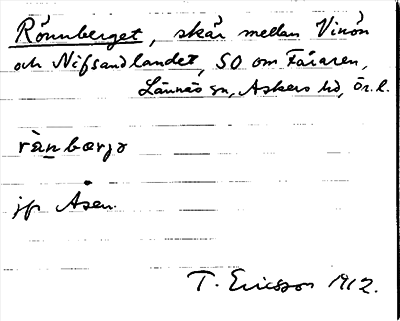 Rönnberget, skär mellan Vinön
och Nifsandlandet, SO om Fåraren,
Lännäs sn, Askers hd, Ör. l.
rànbærjə
jfr Åsen.
T. Ericsson 1912.